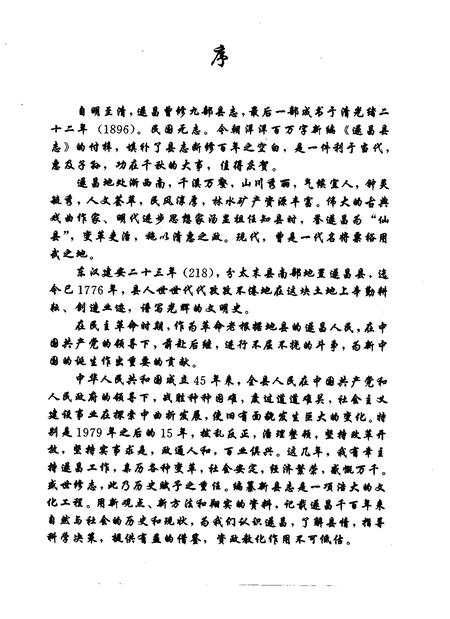 序
自明至清，遂昌曾修九部县志，最后一部成书于清光绪二
十二年（1896）。民国无志。今朝洋洋百万字新编《遂昌县
志》的付梓，填补了县志断修百年之空白，是一件利于当代，
惠及子孙，功在千秋的大事，值得庆贺。
遂昌地处浙西南，千溪万壑，山川秀丽，气候宜人，钟灵
毓秀，人文荟萃，民风淳厚，林水矿产资源丰富。伟大的古典
戏曲作家、明代进步思想家汤显祖任知县时，誉遂昌为“仙
县”，变革吏治，施以清惠之政。现代，曾是一代名将粟裕用
武之地。
东汉建安二十三年（218），分太末县南部地置遂昌县，迄
今已1776年，县人世世代代孜孜不倦地在这块土地上辛勤耕
耘、创造业迹，谱写光辉的文明史。
在民主革命时期，作为革命老根据地县的遂昌人民，在中
国共产党的领导下，前赴后继，进行不屈不挠的斗争，为新中
国的诞生作出重要的贡献。
中华人民共和国成立45年来，全县人民在中国共产党和
人民政府的领导下，战胜种种困难，度过道道难关，社会主义
建设事业在探索中曲折发展，使旧有面貌发生巨大的变化。特
别是1979年之后的15年，拨乱反正，治理整顿，坚持改革开
放，坚持实事求是，政通人和，百业俱兴。这几年，我有幸主
持遂昌工作，亲历各种变革，社会安定，经济繁荣，感慨万千。
盛世修志，此乃历史赋予之重任。编纂新县志是一项浩大的文
化工程。用新观点、新方法和翔实的资料，记载遂昌千百年来
自然与社会的历史和现状，为我们认识遂昌，了解县情，指导
科学决策，提供有益的借鉴，资政教化作用不可低估。